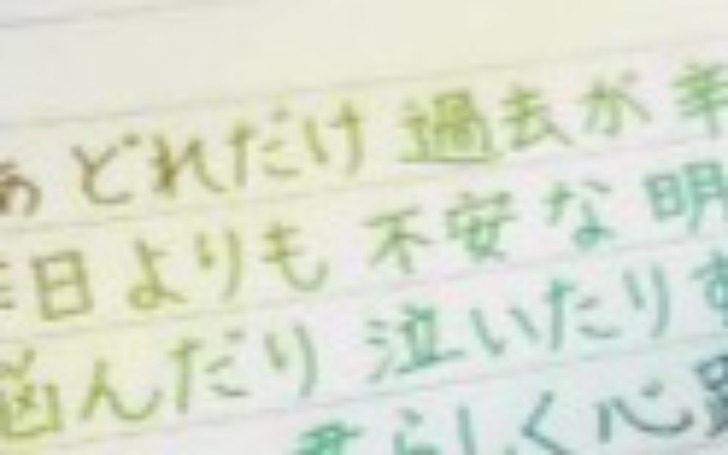 ぁ どれだけ 過去が 辛
昨日よりも 不安な 明
悩んだり 泣いたり す
君らしく心躍